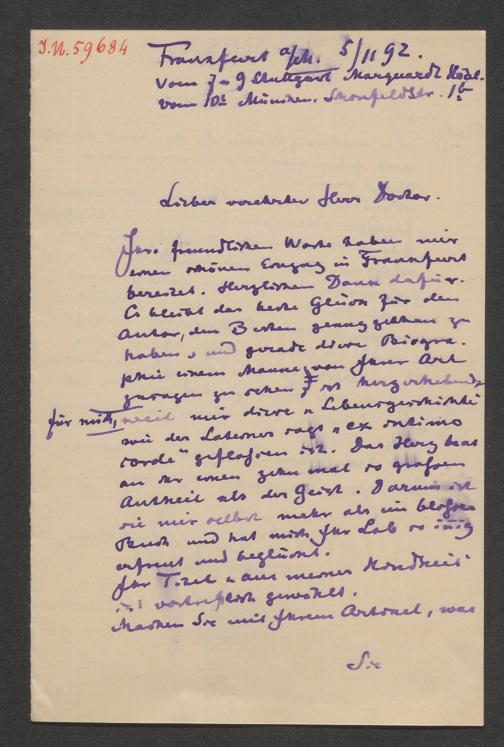 I.N. 59684
Frankfurt a/M. 5/11 92.
vom 7-9 Stuttgart Marquardt Hôtel.
vom 10t München. Schönfeldstr. 1b
Lieber verehrter Herr Doctor.
Ihre freundlichen Worte haben mir
einen schönen Eingang in Frankfurt
bereitet. Herzlichen Dank dafür.
Es bleibt das beste Glück für den
Autor, den Besten genug gethan zu
haben, und gerade diese Biogra-
phie einem Manne von Ihrer Art
zusagen zu sehen, ist herzerhebend
für mich, weil mir diese "Lebensgeschichte
wie der Lateiner sagt "ex intimo
corde" geflossen ist. Das Herz hat
an ihr einen zehn mal so grossen
Antheil als der Geist. Darum ist
sie mir selbst mehr als ein blosses
Buch und hat mich Ihr Lob so innig
erfreut und beglückt.
Ihr Titel "aus meiner Kindheit"
ist vortrefflich gewählt.
Machen Sie mit Ihrem Artikel, was
Sie